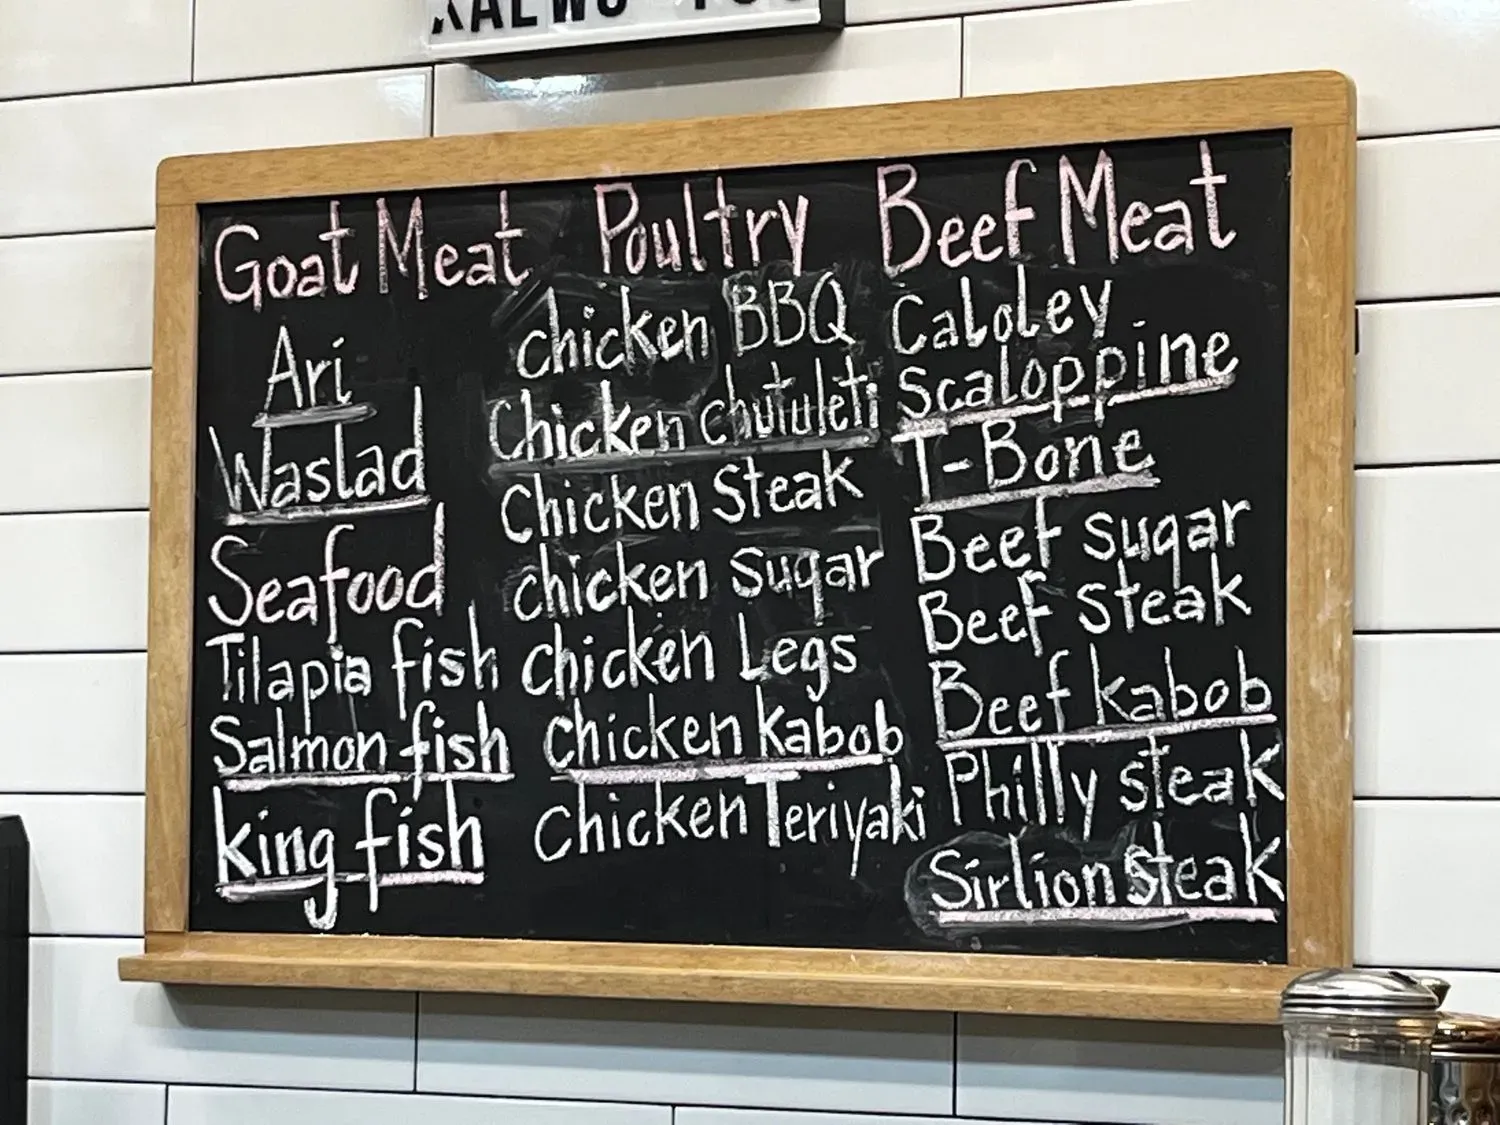 Goat Meat
Ari
Waslad
Seafood
Tilapia fish
Salmon fish
king fish
Poultry
chicken BBQ
Chicken chututeti
Chicken Steak
chicken Suqar
chicken Legs
chicken kabob
chicken Teriyaki
Beef Meat
Caloley
Scaloppine
T-Bone
Beef suqar
Beef steak
Beef kabob
Philly steak
Sirlion steak